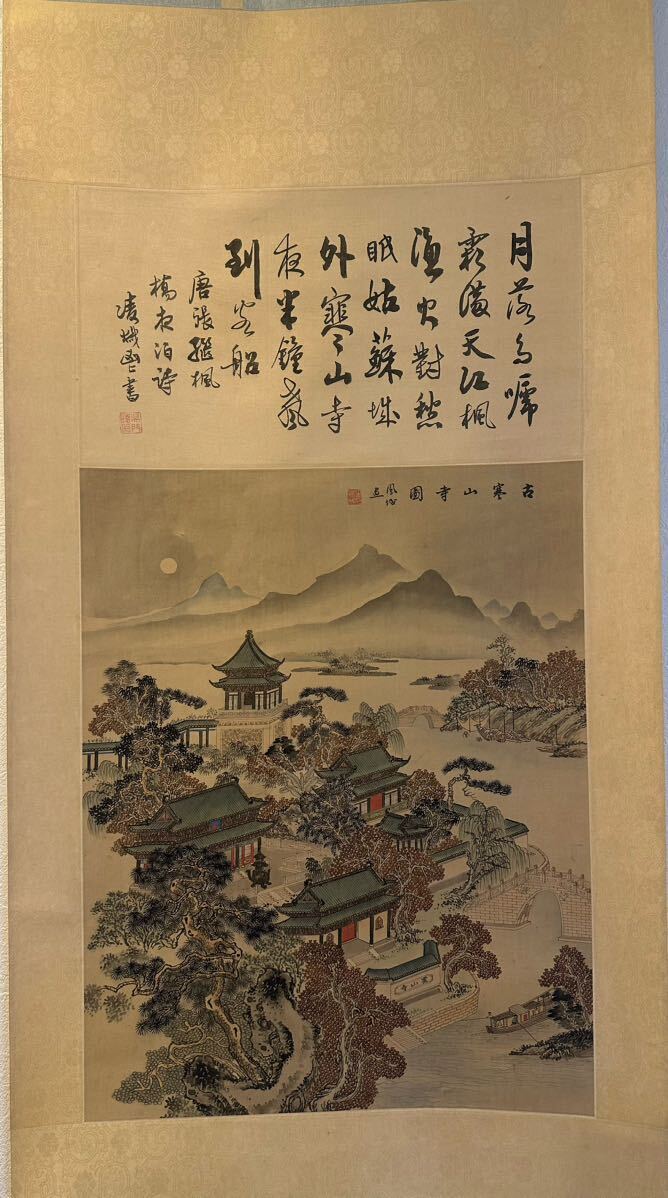 月落烏啼
霜滿天江楓
漁火對愁
眠姑蘇城
外寒山寺
夜半鐘聲
到客船
唐張繼楓
橋夜泊詩
書
古寒山寺圖
寒山寺